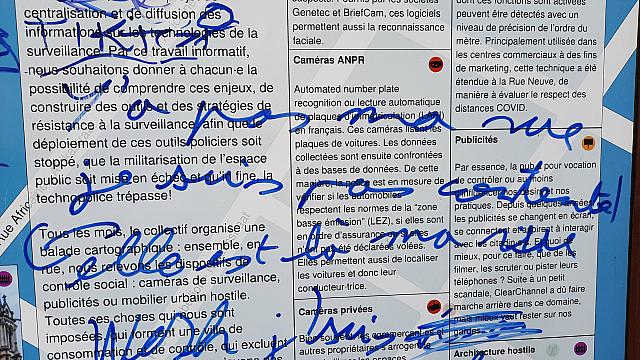 centralisation et de diffusion des
informations sur les technologies de la
surveillance. Par ce travail informatif,
nous souhaitons donner à chacun·e la
possibilité de comprendre ces enjeux, de
construire des outils et des stratégies de
résistance à la surveillance afin que le
déploiement de ces outils policiers soit
stoppé, que la militarisation de l'espace
public soit mise en échec et qu'in fine, la
technopolice trépasse!
Tous les mois, le collectif organise une
balade cartographique : ensemble, en
rue, nous relevons les dispositifs de
contrôle social : caméras de surveillance,
publicités ou mobilier urbain hostile.
Toutes ses choses qui nous sont
imposées, qui forment une ville de
consommation et de contrôle, qui excluent
Genetec et BriefCam, ces logiciels
permettent aussi la reconnaissance
faciale.
Caméras ANPR
Automated number plate
recognition ou lecture automatique
de plaques d'immatriculation (LAPI)
en français. Ces caméras lisent les
plaques de voitures. Les données
collectées sont ensuite confrontées
à des bases de données. De cette
manière, la police est en mesure de
vérifier si les automobiles
respectent les normes de la "zone
basse émission" (LEZ), si elles sont
en ordre d'assurance, si elles
ont pas été déclarées volées.
Elles permettent aussi de localiser
les voitures et donc leur
conducteur·trice.
Caméras privées
Bien souvent les commerçant·es et
autres propriétaires s'arrogent
dont ces fonctions sont activées
peuvent être détectés avec un
niveau de précision de l'ordre du
mètre. Principalement utilisée dans
les centres commerciaux à des fins
de marketing, cette technique a été
étendue à la Rue Neuve, de
manière à évaluer le respect des
distances COVID.
Publicités
Par essence, la pub a pour vocation
de contrôler ou au moins
influencer nos désirs et nos
pratiques. Depuis quelques années
les publicités se changent en écran,
se connectent, désirent à interagir
avec les citadin·es. Et quoi de
mieux, pour ce faire, que de les
filmer, les scruter ou pister leurs
téléphones ? Suite à un petit
scandale, ClearChannel a dû faire
marche arrière dans ce domaine,
mais mieux vaut rester sur nos
gardes.
Architecture hostile
rue Afri
pas ma rue
je suis pas contente!
Celle est là ma rue